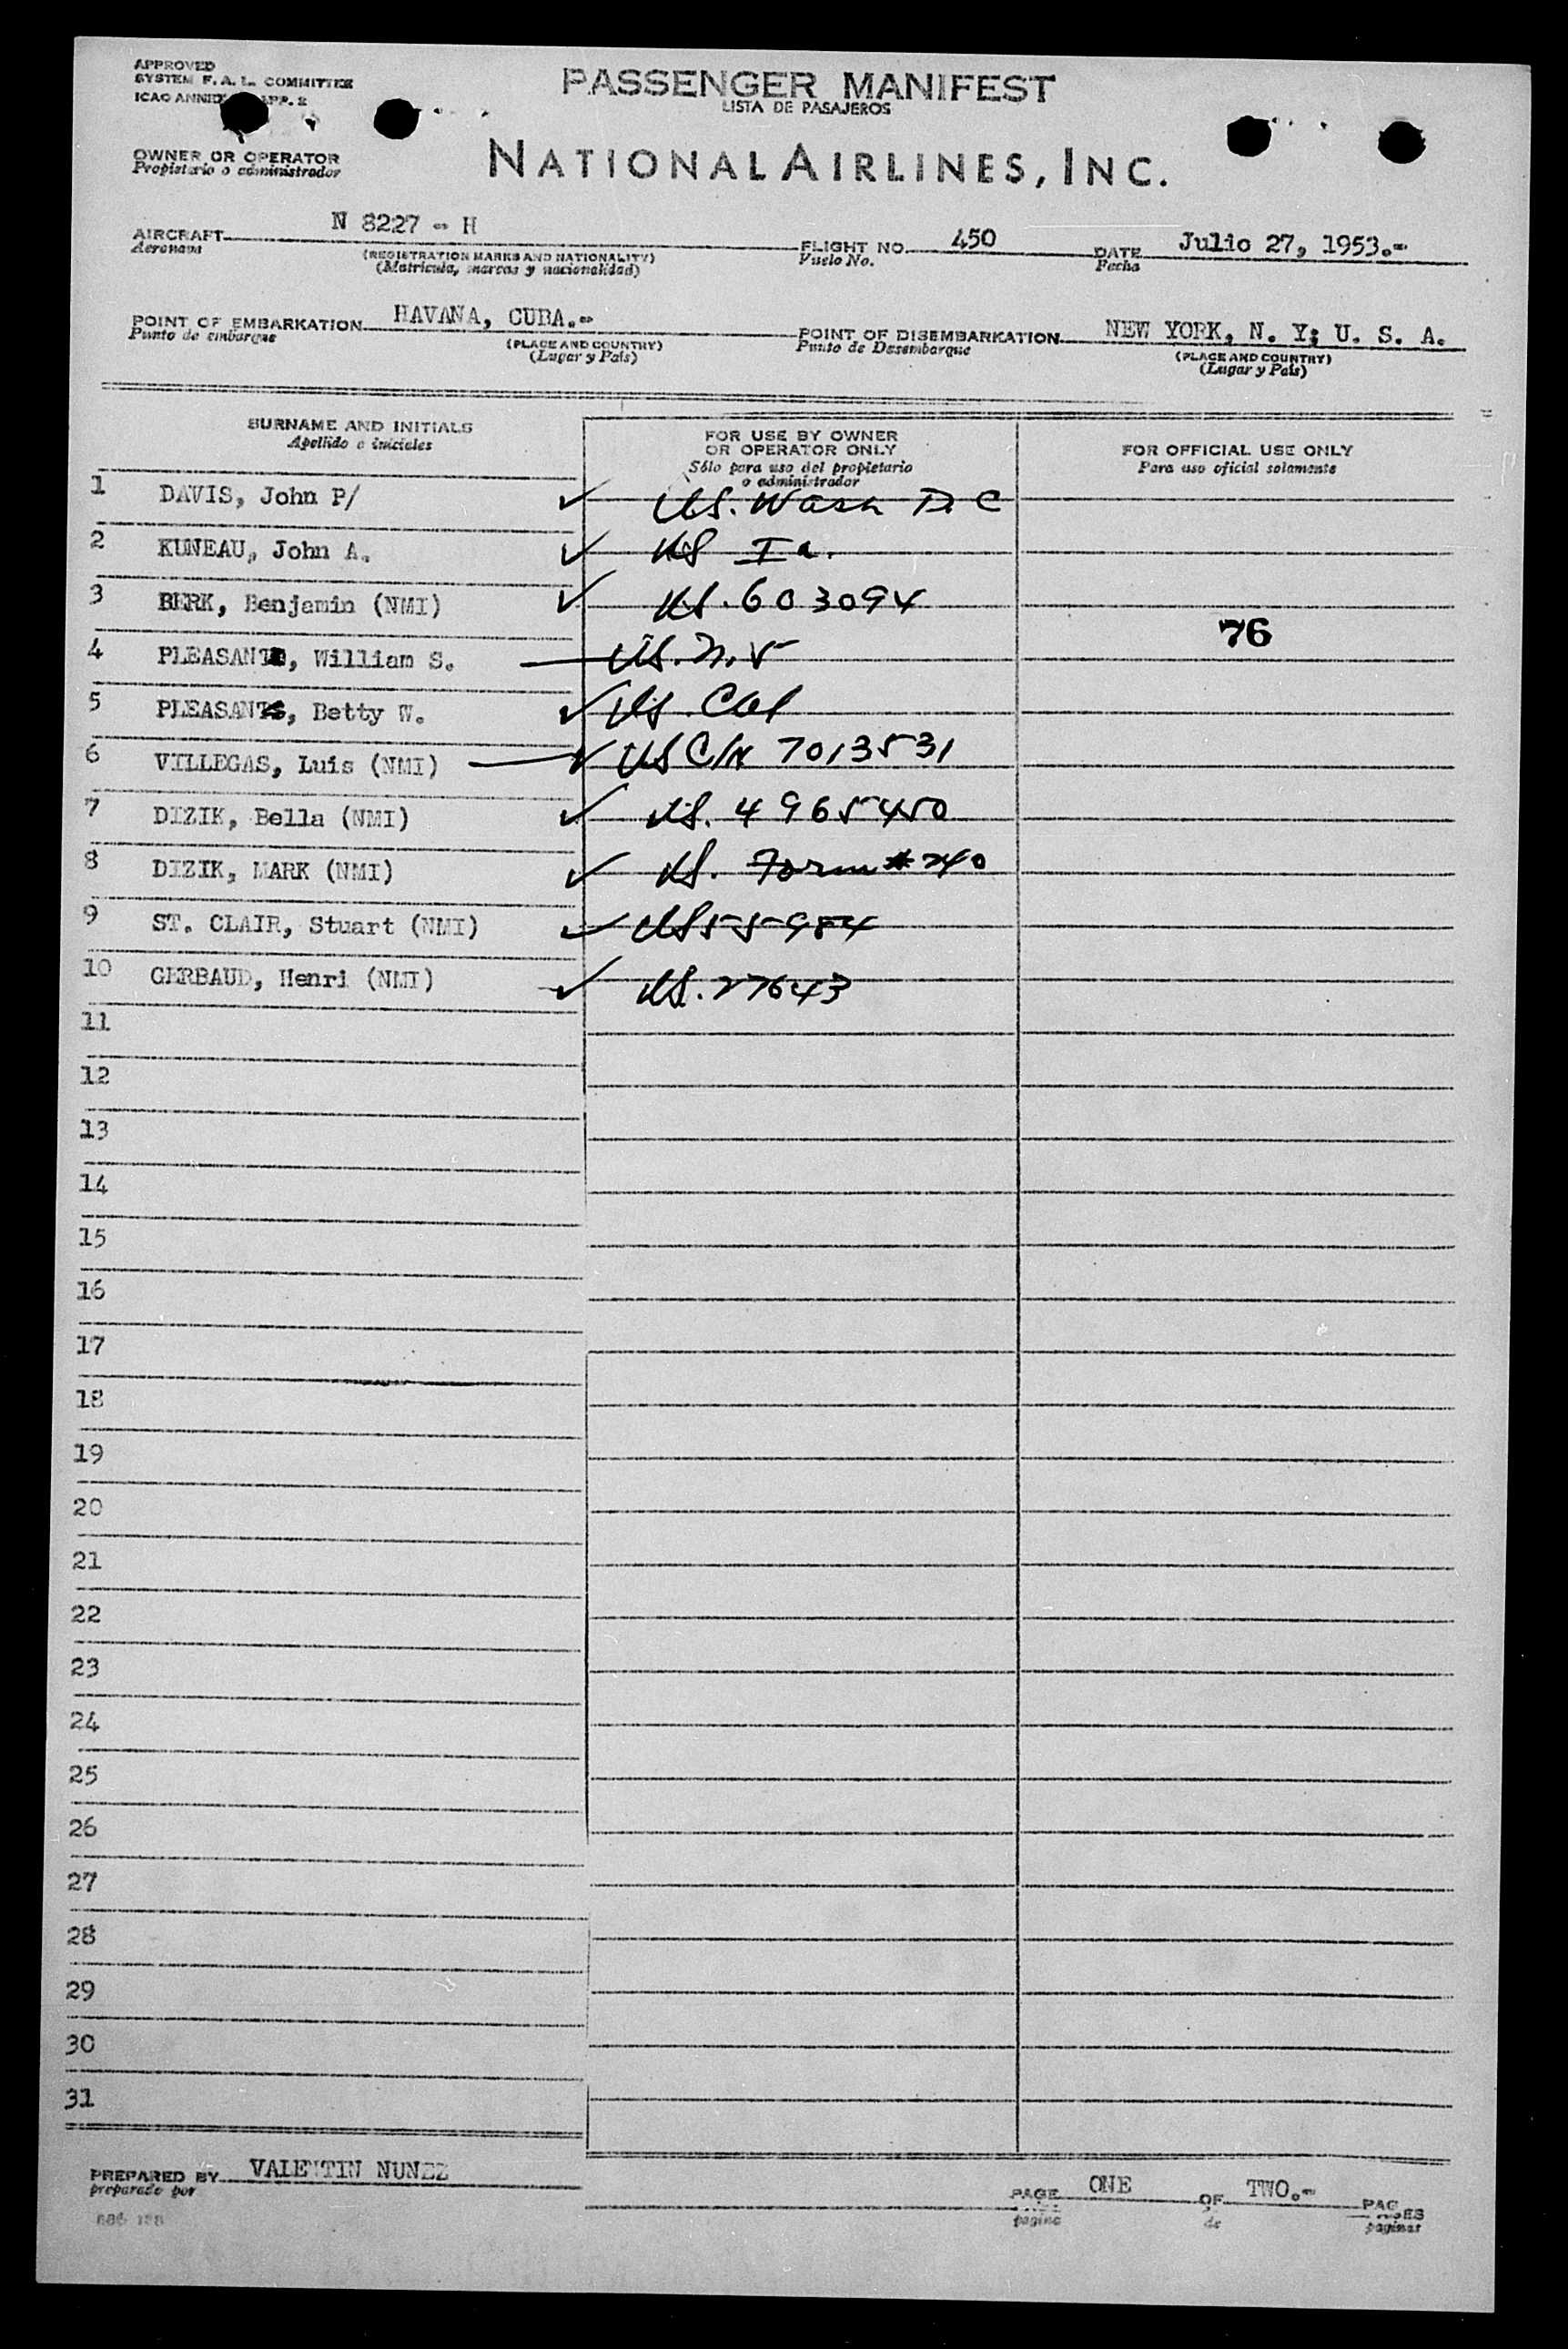 APPROVED
SYSTEM F. A. L. COMMITTEE
ICAO APP. 2
PASSENGER MANIFEST
LISTA DE PASAJEROS
OWNER OR OPERATOR
Propietario o administrador
NATIONAL AIRLINES, INC.
AIRCRAFT N 8227 - H FLIGHT NO. 450 DATE Julio 27, 1953.-
Aeronave (REGISTRATION MARKS AND NATIONALITY) Vuelo No. Fecha
(Matricula, marcas y nacionalidad)
POINT OF EMBARKATION HAVANA, CUBA.- POINT OF DISEMBARKATION NEW YORK, N. Y; U. S. A.
Punto de embarque (PLACE AND COUNTRY) Punto de Desembarque (PLACE AND COUNTRY)
(Lugar y País) (Lugar y País)
SURNAME AND INITIALS
Apellido e iniciales
FOR USE BY OWNER
OR OPERATOR ONLY
Sólo para uso del propietario
o administrador
FOR OFFICIAL USE ONLY
Para uso oficial solamente
1 DAVIS, John P/ ✓ US. Wash D.C
2 KUNEAU, John A. ✓ US Ia.
3 BERK, Benjamin (NMI) ✓ US. 603094
76
4 PLEASANTS, William S. US. N.Y
5 PLEASANTS, Betty W. ✓ US. Cal
6 VILLEGAS, Luis (NMI) ✓ US C/N 7013531
7 DIZIK, Bella (NMI) ✓ US. 4965450
8 DIZIK, MARK (NMI) ✓ US. Form #240
9 ST. CLAIR, Stuart (NMI) ✓ US 55984
10 GERBAUD, Henri (NMI) ✓ US. 27643
11
12
13
14
15
16
17
18
19
20
21
22
23
24
25
26
27
28
29
30
31
PREPARED BY VALENTIN NUNEZ
preparado por
PAGE ONE OF TWO.- PAGES
pagina de paginas